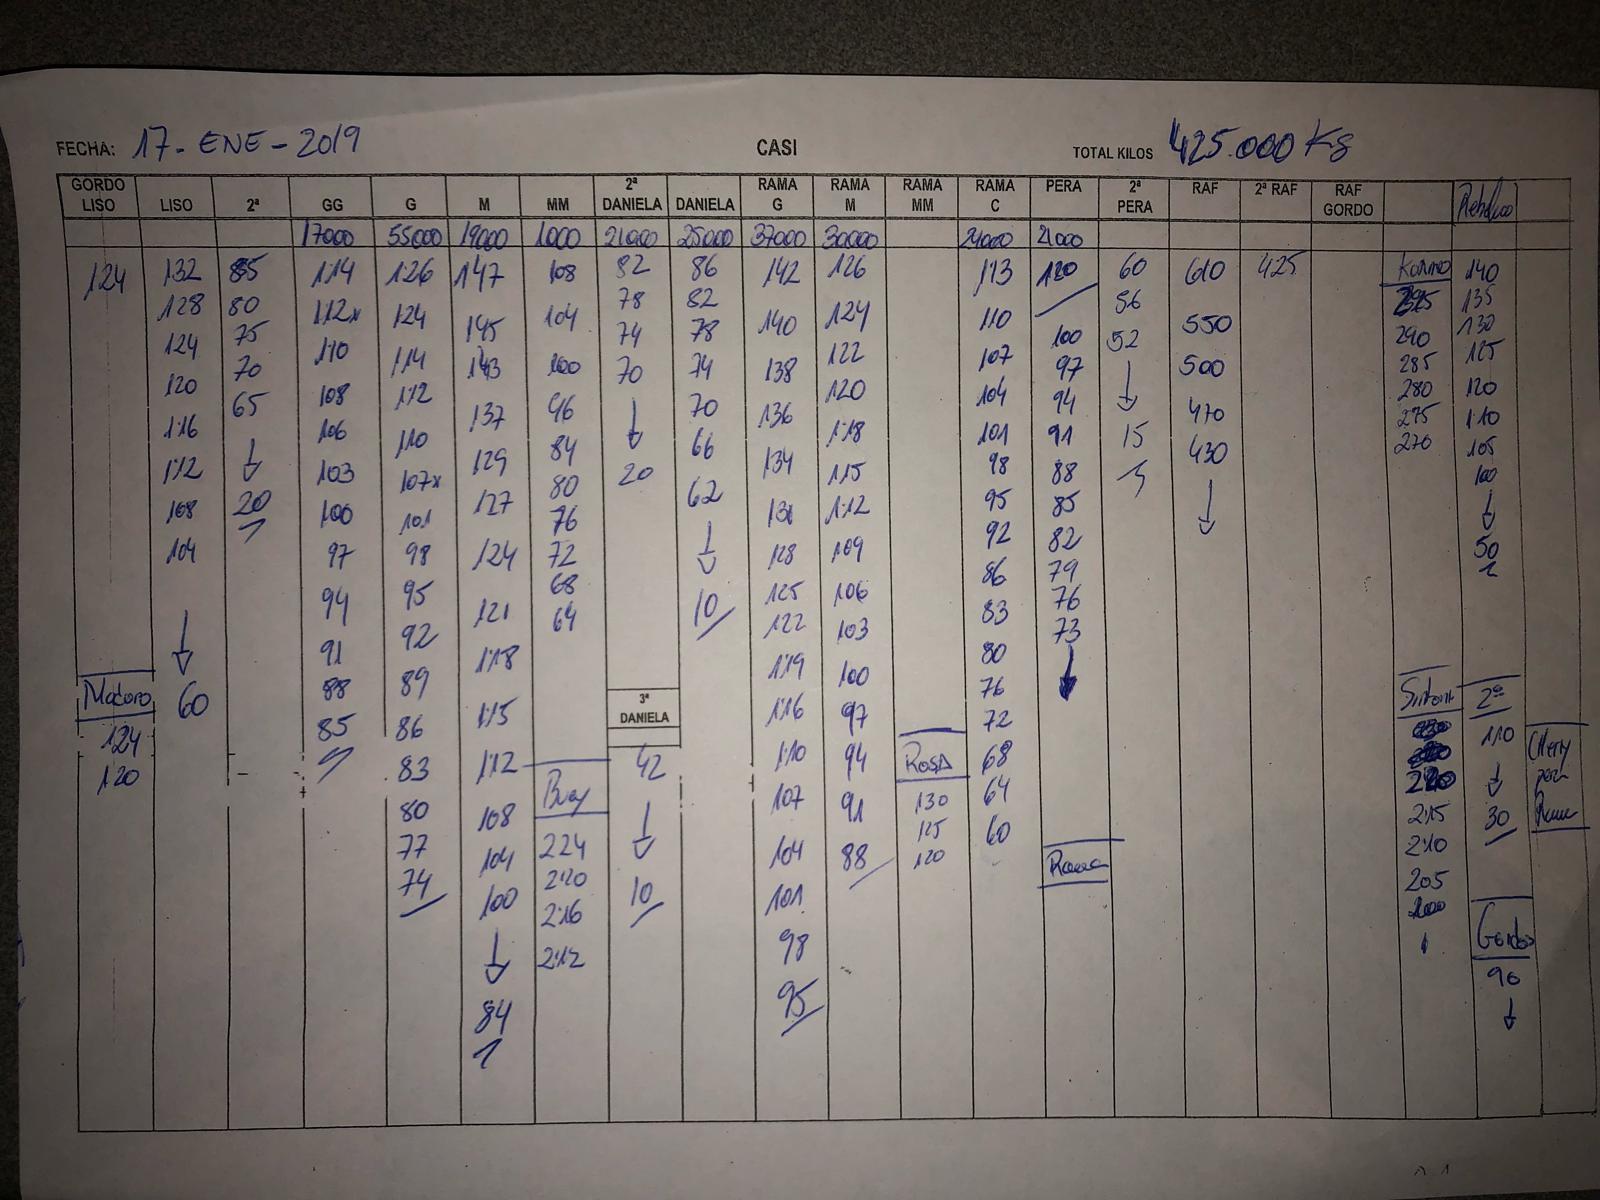 FECHA: 17-ENE-2019 CASI TOTAL KILOS 425.000 Kg
GORDO LISO LISO 2ª GG G M MM 2ª DANIELA DANIELA RAMA G RAMA M RAMA MM RAMA C PERA 2ª PERA RAF 2ª RAF RAF GORDO
17000 55000 19000 1000 21000 25000 37000 30000 21000
124 132 85 114 126 147 108 82 86 142 126 113 120 60 610 425 140
128 80 112x 124 145 104 78 82 140 124 110 100 56 550 135
124 75 110 114 143 100 74 78 138 122 107 97 52 500 290 130
120 70 108 112 137 96 70 74 136 120 104 94 ↓ 470 285 125
116 65 106 110 129 84 ↓ 70 134 118 101 91 15 430 280 120
112 ↓ 103 107x 127 80 20 66 131 115 98 88 ↓ 275 110
108 20 100 101 124 76 62 128 112 95 85 270 105
104 97 98 121 72 ↓ 125 109 92 82 100
↓ 94 95 118 68 10 122 106 86 79 ↓
60 91 92 115 64 119 103 83 76 50
88 89 112 116 100 80 73
85 86 108 110 97 76 ↓
83 104 107 94 72
80 100 104 91 68
77 ↓ 101 88 64
74 84 98 60
95
Maduro
124
120
3ª DANIELA
42
↓
10
224
220
216
212
ROSA
130
125
120
Rama
220
215
210
205
200
2ª
110
↓
30
Cherry
pera
Rama
Gordo
90
↓